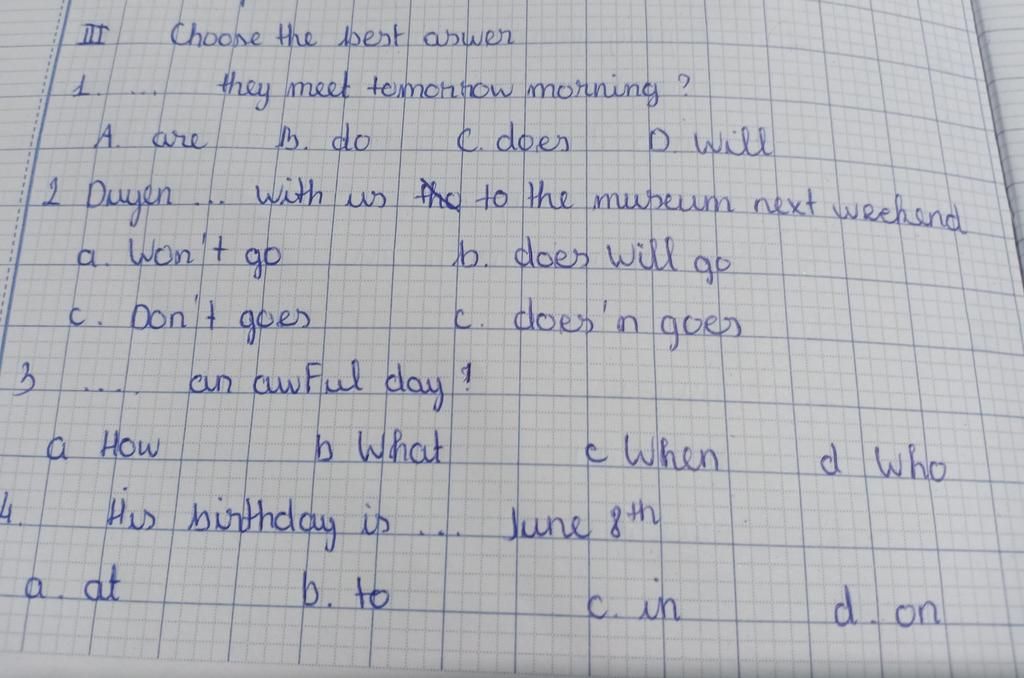 III Choose the best aswer
1. ... they meet tomorrow morning ?
A. are B. do C. does D. will
2 Duyen ... with us to the museum next weekend
a. Won't go b. does will go
c. Don't goes c. does'n goes
3 .... an awful day !
a How b What c When d Who
4. His birthday is ... June 8th
a. at b. to c. in d. on